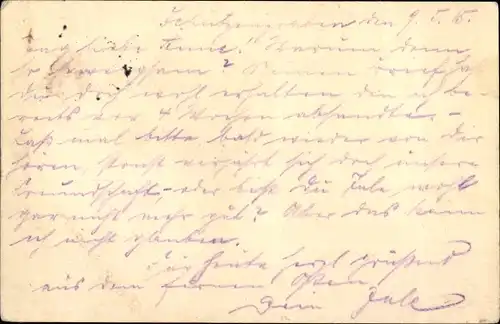 Schützengraben den 9.5.15.
Mein liebe Anne! Warum denn
so schweigsam? Meinen Brief hast
du doch wohl erhalten den ich be-
reits vor 4 Wochen absandte. -
Laß mal bitte bald wieder von Dir
hören, sonst verjährt sich doch unsere
Freundschaft, - oder bist Du Jule wohl
gar nicht mehr gut? Aber das kann
ich nicht glauben.
Für heute herzl. grüßend
aus dem fernen Osten
Dein Jule